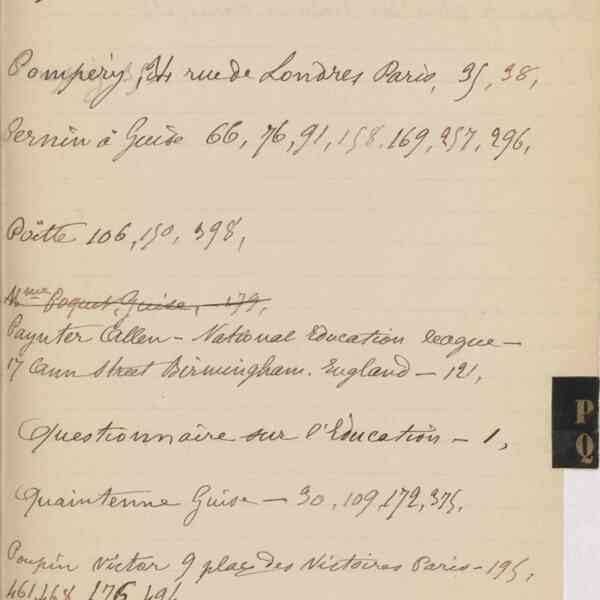 Pompéry, 34 rue de Londres Paris, 35, 38,
Pernin à Guise 66, 76, 91, 158, 169, 257, 296,
Poëtte 106, 150, 398,
Mme Poquet, Guise, 179,
Paynter Allen - National Education league -
17 Ann Street Birmingham. England - 121,
Questionnaire sur l'Education - 1,
Quaintenne Guise - 30, 109, 172, 375,
Poupin Victor 9 place des Victoires Paris - 195,
461, 468, 476, 491
P
Q